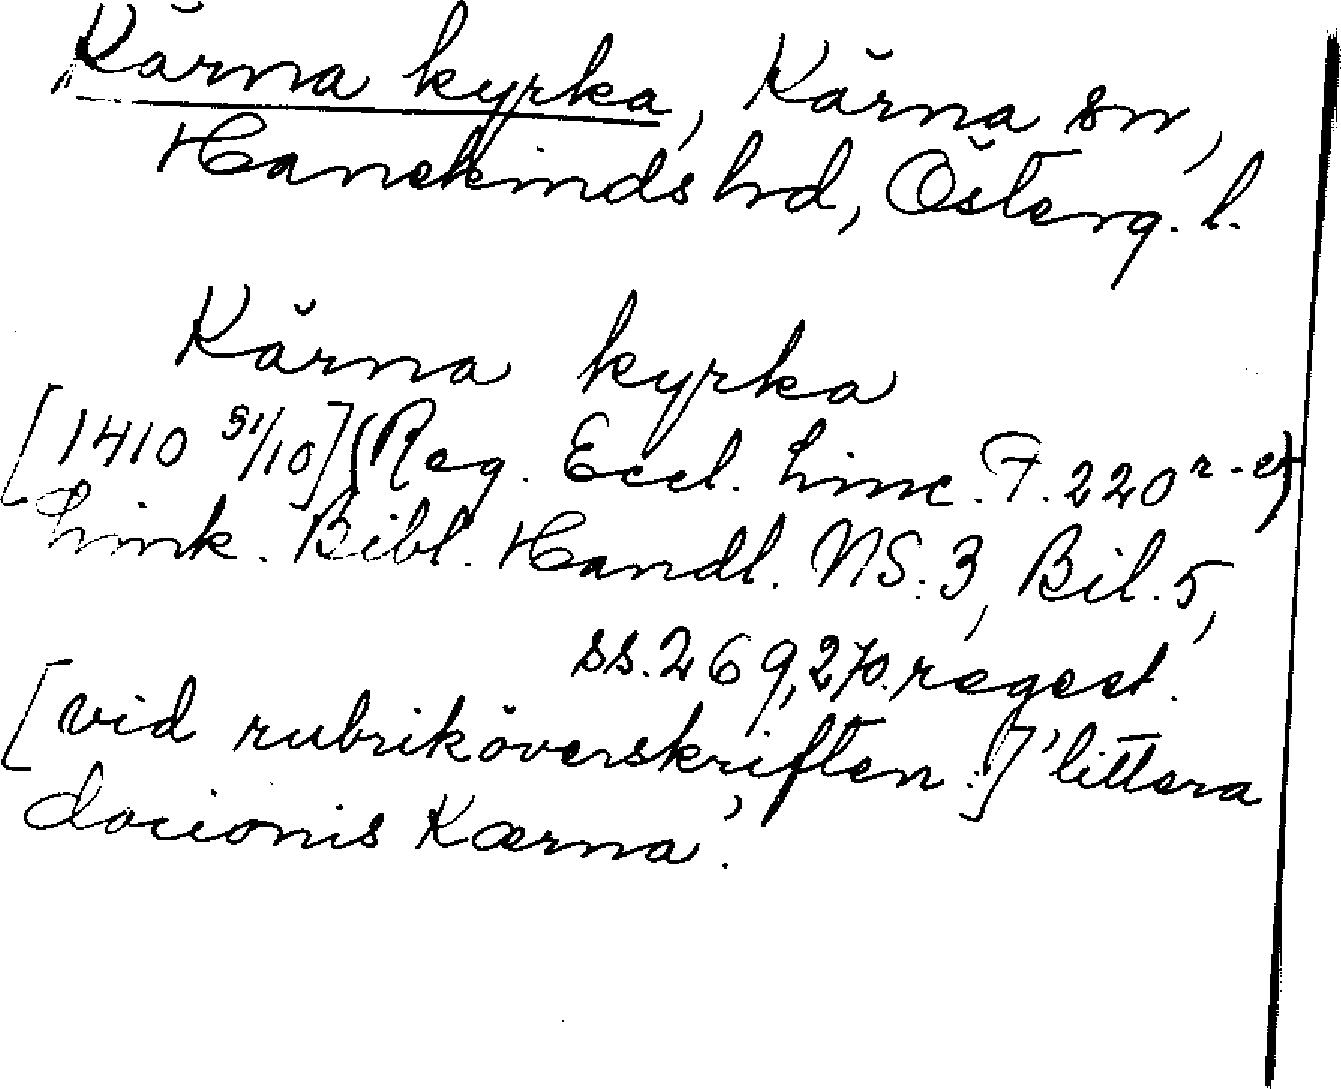 Kärna kyrka, Kärna sn,
Hanekinds hd, Österg. l.
Kärna kyrka
[1410 31/10] (Reg. Eccl. Linc. F. 220 r-v)
Link. Bibl. Handl. NS. 3, Bil. 5,
ss. 269, 270. regest.
[vid rubriköverskriften:] 'littera
dacionis Kærna'.